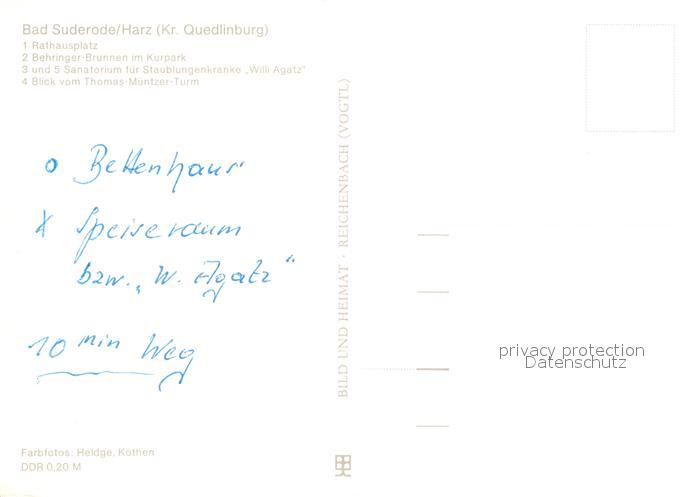 Bad Suderode/Harz (Kr. Quedlinburg)
1 Rathausplatz
2 Behringer-Brunnen im Kurpark
3 und 5 Sanatorium für Staublungenkranke „Willi Agatz"
4 Blick vom Thomas-Müntzer-Turm
o Bettenhaus
x Speiseraum
bzw. „W. Agatz"
10 min Weg
Farbfotos: Heldge, Köthen
DDR 0,20 M
BILD UND HEIMAT · REICHENBACH (VOGTL)
privacy protection
Datenschutz